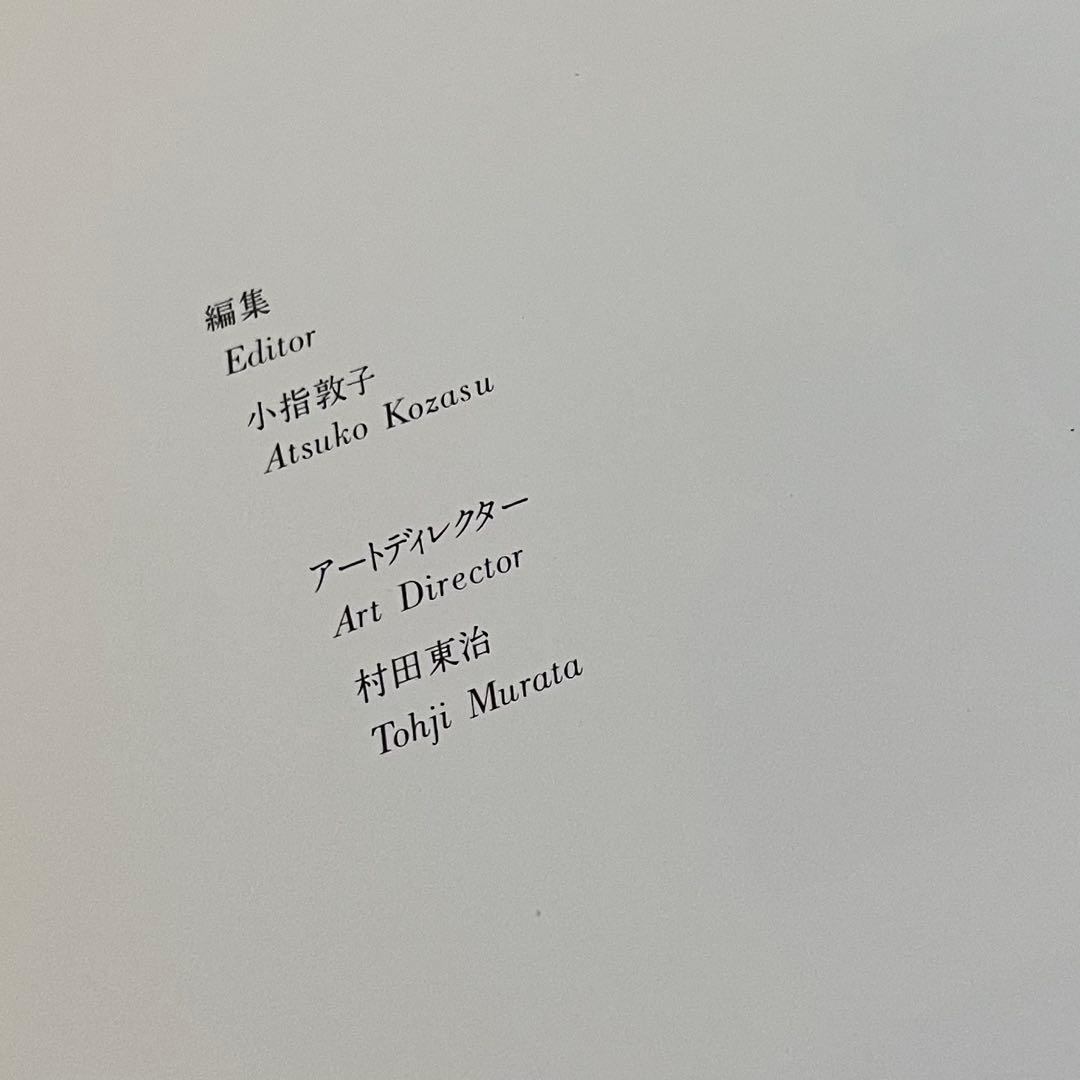 編集
Editor
小指敦子
Atsuko Kozasu
アートディレクター
Art Director
村田東治
Tohji Murata